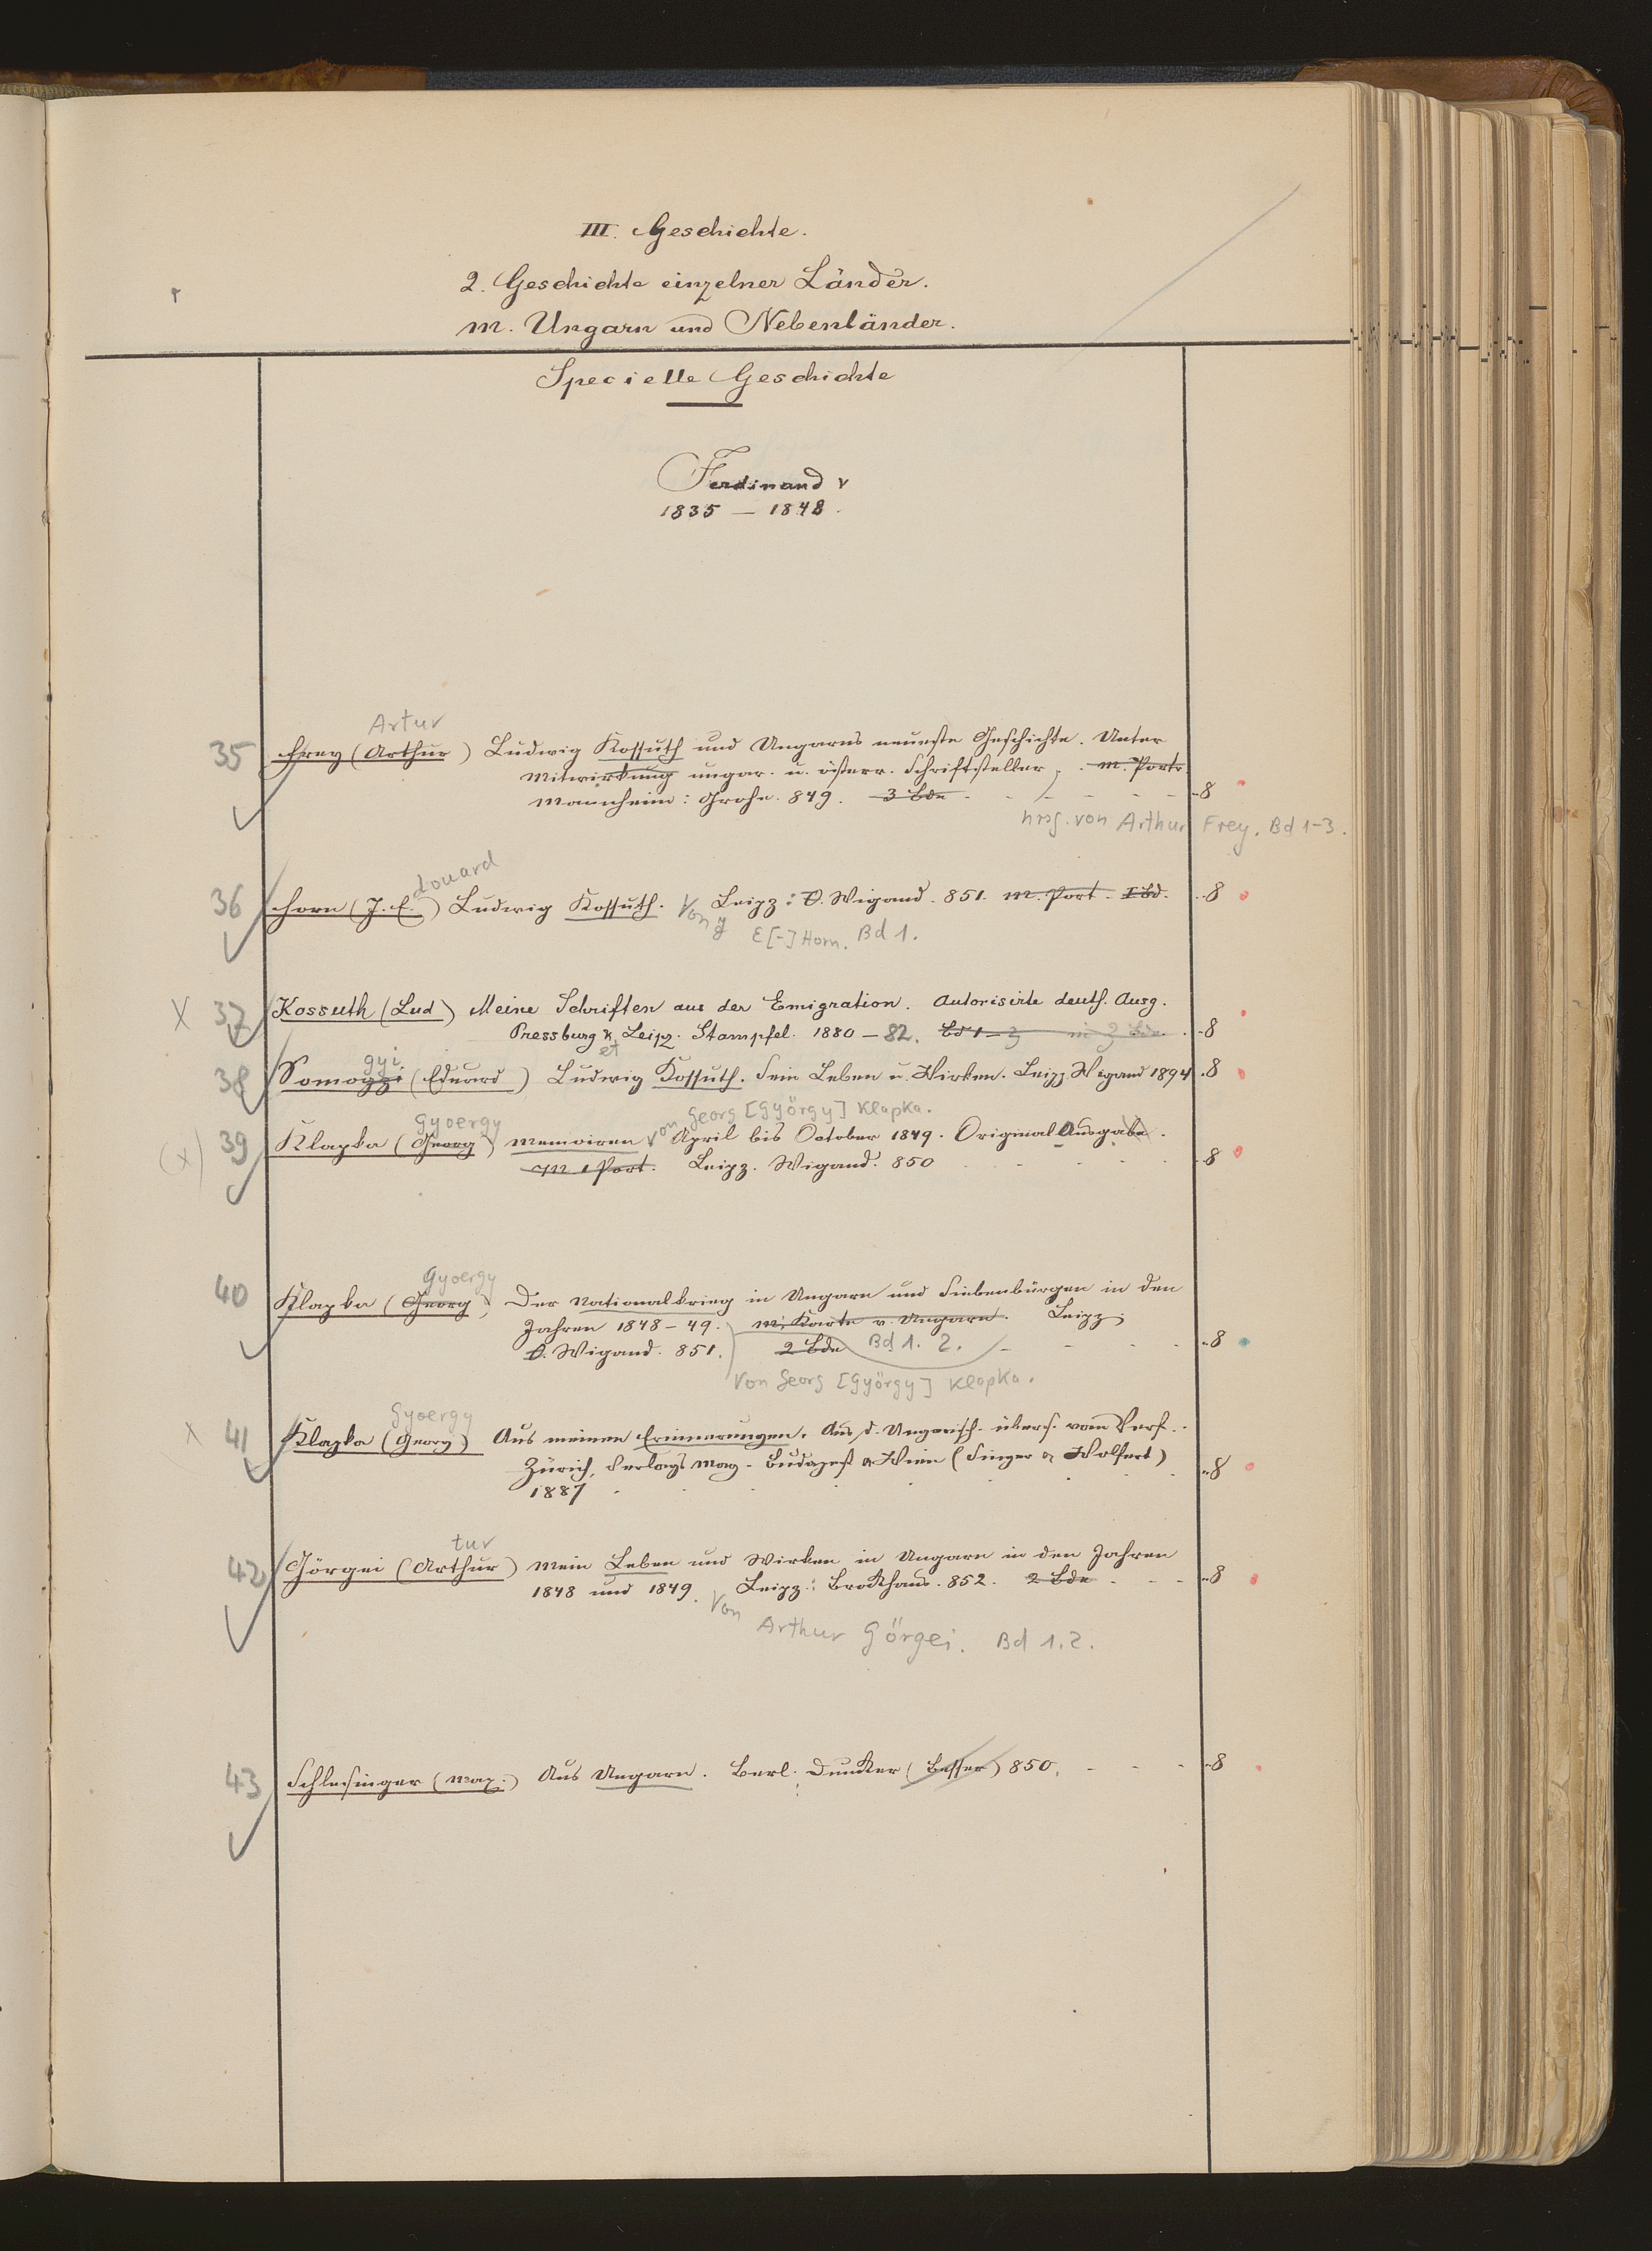 III. Geschichte.
2. Geschichte einzelner Länder.
m. Ungarn und Nebenländer.
Specielle Geschichte
Ferdinand V
1835 — 1848.
Artur
35 Frey (Arthur) Ludwig Kossuth und Ungarns neueste Geschichte. Unter
Mitwirkung ungar. u. österr. Schriftsteller, . m. Portr.
Mannheim: Grohe. 849. 3 Bde - - - - - - 8
hrsg. von Arthur Frey. Bd 1-3.
douard
36 Horn (J. E.) Ludwig Kossuth. Leipz: O. Wigand. 851. m. Port. I Bd. - 8
Von J E[-] Horn. Bd 1.
X 37 Kossuth (Lud) Meine Schriften aus der Emigration. Autorisirte deuts. Ausg.
Pressburg & Leipz. Stampfel. 1880 – 82. Bd 1–3 in 3 Bde. - 8
et
gyi
38 Somogyi (Eduard) Ludwig Kossuth. Sein Leben u. Wirken. Leipz Wigand 1894 . 8
Gyoergy
von Georg [György] Klapka.
(x) 39 Klapka (Georg) Memoiren April bis October 1849. Original Ausgabe.
M 1 Port. Leipz. Wigand. 850 - - - - 8
Gyoergy
40 Klapka (Georg) Der Nationalkrieg in Ungarn und Siebenbürgen in den
Jahren 1848–49. m. Karte v. Ungarn. Leipz:
O. Wigand. 851. 2 Bde Bd 1. 2. - - - - 8
Von Georg [György] Klapka.
Gyoergy
x 41 Klapka (Georg) Aus meinen Erinnerungen. Aus d. Ungarisch. übers. vom Verf. .
Zürich, Verlags Mag - Budapest & Wien (Singer & Wolfert)
1887 - 8
tur
42 Görgei (Arthur) Mein Leben und Wirken in Ungarn in den Jahren
1848 und 1849. Leipz: Brockhaus. 852. 2 Bde - - - 8
Von Arthur Görgei. Bd 1.2.
43 Schlesinger (Max:) Aus Ungarn. Berl. Duncker (Besser) 850. - - - 8